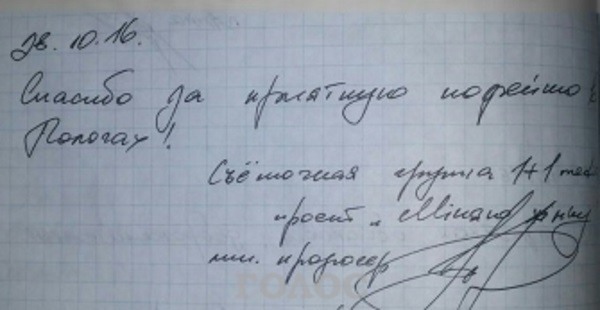 28.10.16.
Спасибо за приятную кофейню в
Пологах!
Съёмочная группа 1+1 media
проект „Міняю жінку
продюсер
ГОЛОС